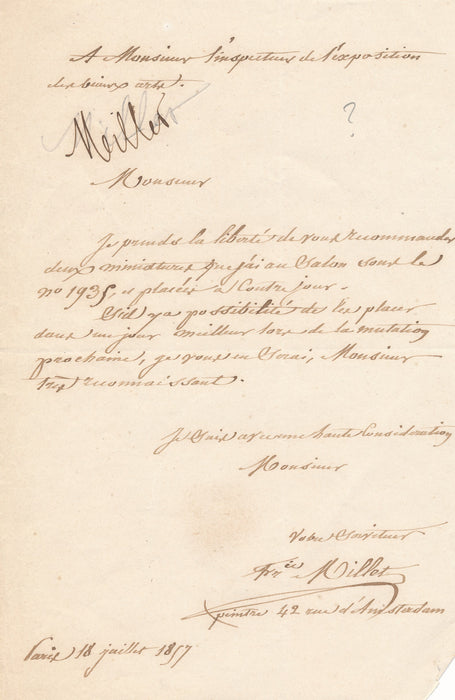 A Monsieur l'inspecteur de l'exposition
des beaux arts.
Meiller
?
Monsieur
Je prends la liberté de vous recommander
deux miniatures que j'ai au Salon sous le
no 1935, et placées à Contre jour.
S'il y a possibilité de les placer
dans un jour meilleur lors de la mutation
prochaine, je vous en Serai, Monsieur
très reconnaissant.
Je Suis avec une haute Considération
Monsieur
Votre Serviteur
Fric Millet
peintre 42 rue d'Amsterdam
Paris 18 juillet 1857